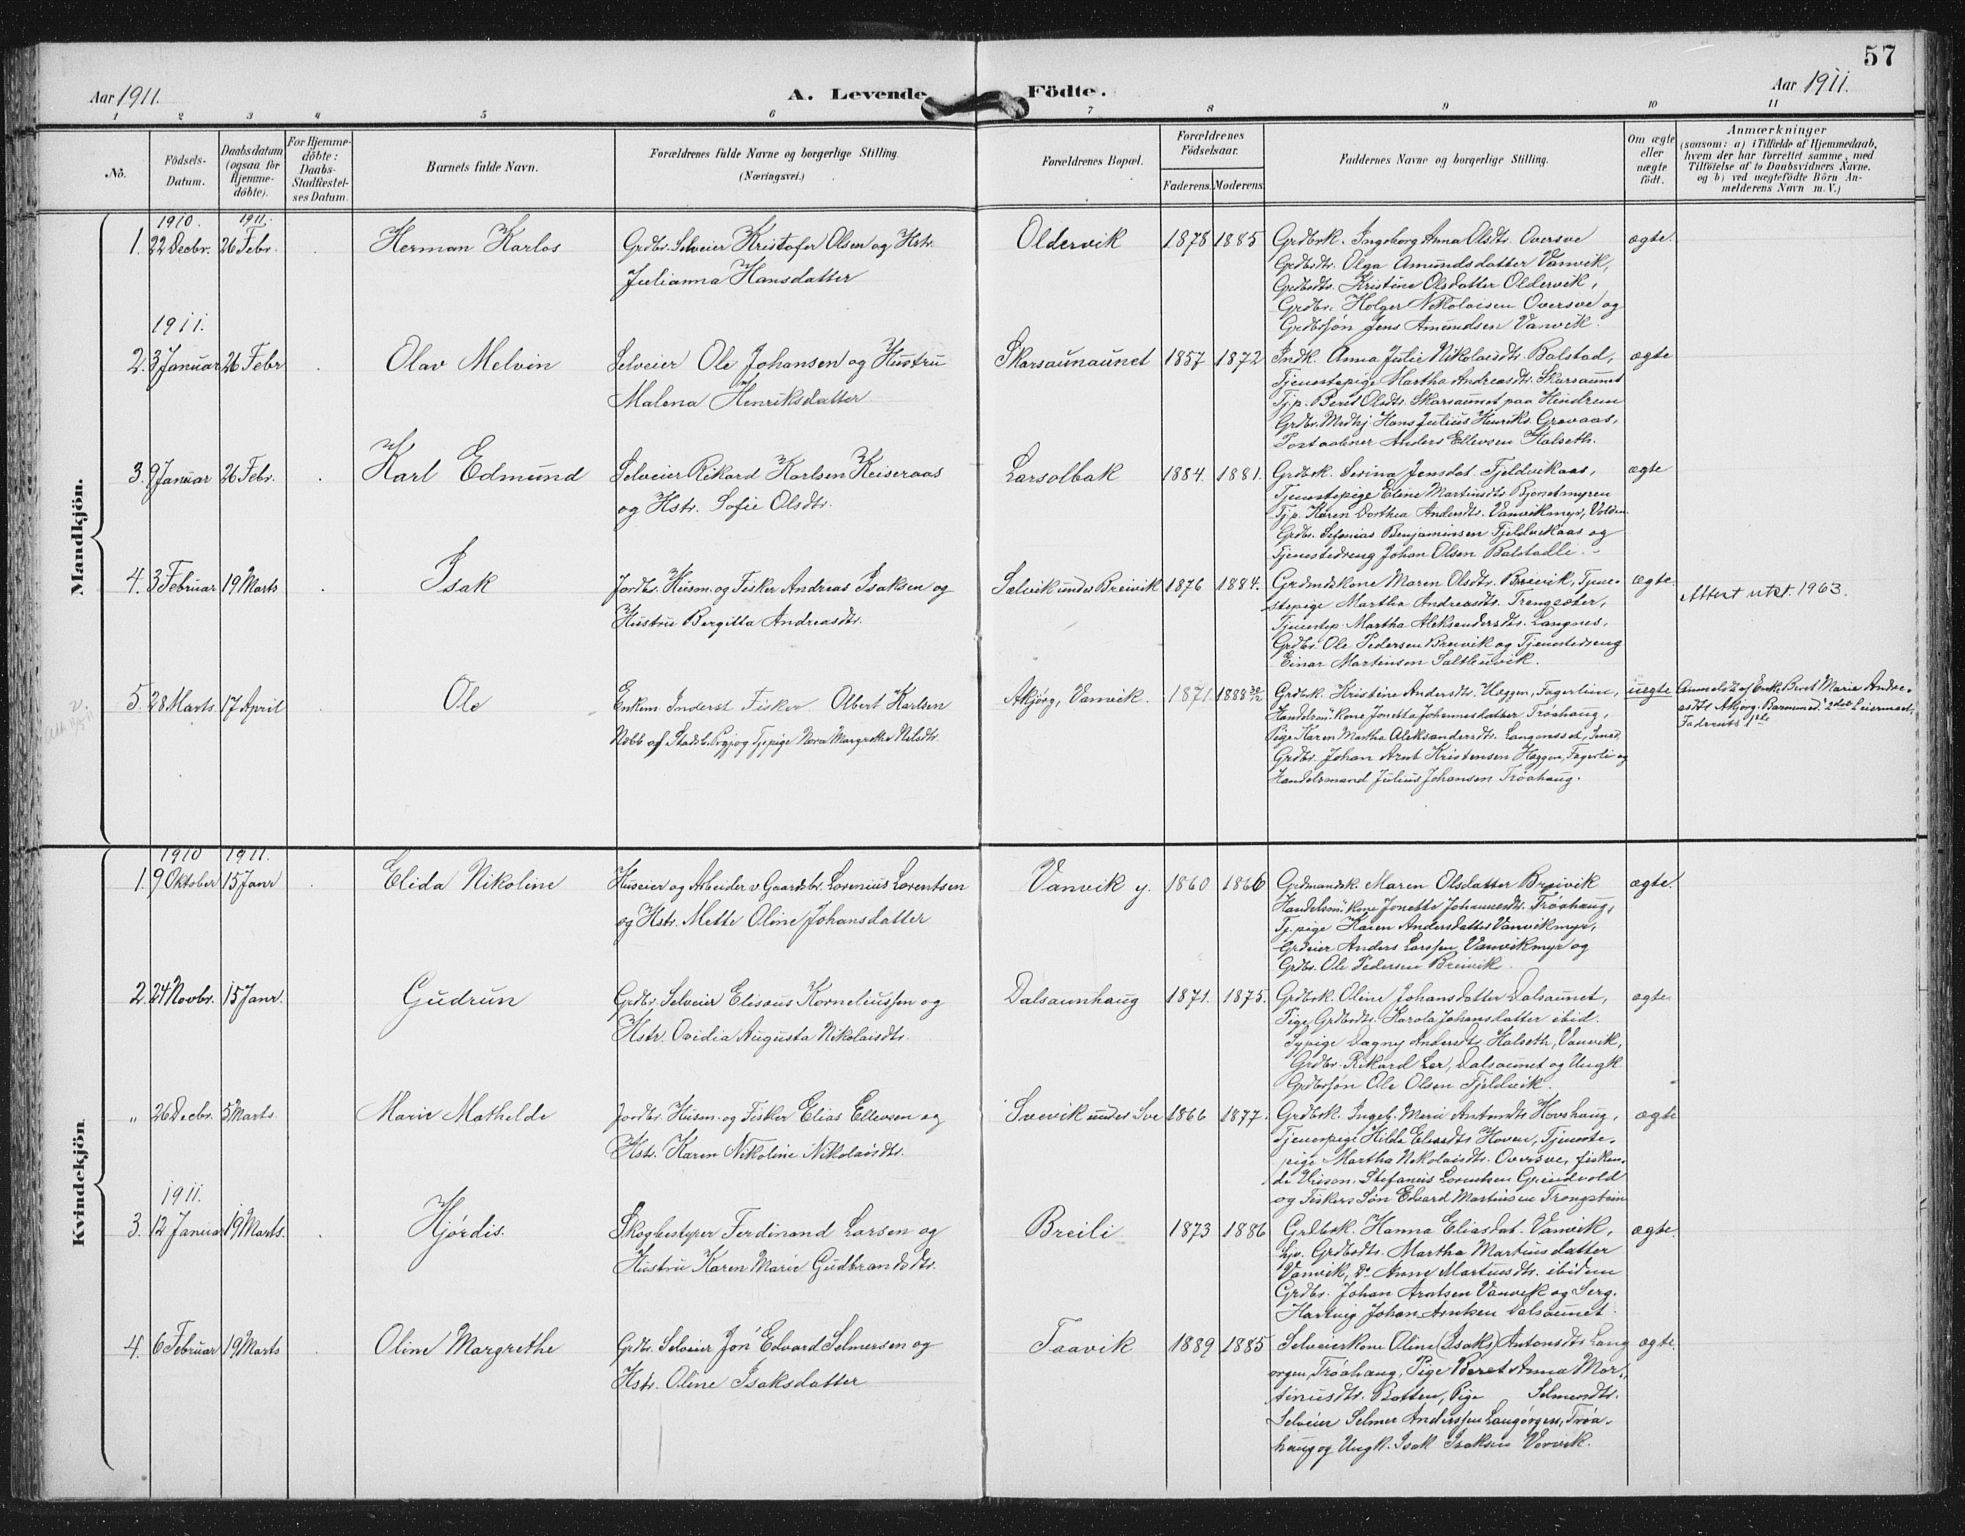 57
Aar 1911.
A. Levende
Födte.
Aar 1911.
1 2 3 4 5 6 7 8 9 10 11
No.
Födsels-
Datum.
Daabsdatum
(ogsaa for
Hjemme-
döbte).
For Hjemme-
döbte:
Daabs-
Stadfæstel-
ses Datum.
Barnets fulde Navn.
Forældrenes fulde Navne og borgerlige Stilling.
(Næringsvei.)
Forældrenes Bopæl.
Forældrenes
Födselsaar.
Faderens. Moderens.
Faddernes Navne og borgerlige Stilling.
Om ægte
eller
uægte
födt.
Anmærkninger
(saasom: a) i Tilfælde af Hjemmedaab,
hvem der har forrettet samme, med
Tilföielse af to Daabsvidners Navne.
og b) ved uægtefödte Börn An-
melderens Navn m. V.)
Mandkjön.
1910. 1911.
1. 22 Decbr. 26 Febr. Herman Karlos
Grdbr. Selveier Kristofer Olsen og Hstr.
Julianna Hansdatter
Oldervik 1878 1885
Grdbrk. Ingeborg Anna Olsdtr. Oversve
Grdbrdtr. Olga Amundsdatter Vanvik,
Grdbrdtr. Kristine Olsdatter Oldervik,
Grdbr. Holger Nikolaisen Oversve og
Grdbrsön Jens Amundsen Vanvik.
ægte.
1911.
2. 3 Januar 26 Febr Olav Melvin
Selveier Ole Johansen og Hustru
Malena Henriksdatter
Skarsaunaunet 1857 1872
Indk. Anna Julie Nikolaisdtr. Balstad,
Tjenestepige Martha Andreasdtr. Skarsaunet
Tj.p. Beret Olsdtr. Skarsaunet paa Hindrem
Grdbr. Medhj. Hans Julius Henriks. Gravaas,
Postaabner Anders Ellevsen Halseth.
ægte
3. 9 Januar 26 Febr. Karl Edmund
Selveier Rikard Karlsen Keiseraas
og Hstr. Sofie Olsdtr.
Larsolbak 1884. 1881.
Grdbrk. Serina Jensdat. Fjeldvikaas,
Tjenestepige Eline Martinsdtr Bjonetmyren
Tj.p. Karen Dorthea Andersdtr. Vanvikmyr,
Grdbr. Sefanias Benjaminsen Fjeldvikaas og
Tjenestedreng Johan Olsen Balstadli.
ægte
4. 3 Februar 19 Marts Isak
Jordbr. Husm. og Fisker Andreas Isaksen og
Hustru Bergitta Andreasdtr.
Sælvik under Breivik 1876 1884.
Grdmdskone Maren Olsdtr. Breivik, Tjene-
stepige Martha Andreasdtr. Trengsæter,
Tjenestep. Martha Aleksandersdtr. Langnes,
Grdbr. Ole Pedersen Breivik og Tjenestedreng
Einar Martinsen Saltbuvik.
ægte
Attest utst. 1963.
5. 28 Marts 17 April Ole
Enkem. Inderst Fisker Albert Karlsen
Nebb af Stadsb. Prgj og Tj.pige Nora Margrethe Nilsdtr.
Akjörg, Vanvik. 1871. 1888
Grdbrk. Kristine Andersdtr. Heggen, Fagerlien,
Handelsm.'kone Jonetta Johannesdatter Tröahaug,
Pige Karen Martha Aleksandersdtr. Langenset,
Grdbr. Johan Arnt Kristensen Heggen, Fagerli og
Handelsmand Julius Johansen Tröahaug.
uægte
Anmeldt af Enke Beret Marie Andre-
asdtr Akjörg. Barnemod. 2det Leiermaal,
Faderents 1ste
Kvindekjön
1910 1911.
1. 9 Oktober 15 Janr Elida Nikoline
Huseier og Arbeider v. Gaardsbr. Lorenius Lorentsen
og Hstr. Mette Oline Johansdatter
Vanvik y. 1860 1866
Grdmandsk. Maren Olsdatter Breivik
Handelsm.'kone Jonette Johannesdtr. Tröahaug,
Tj.pige Karen Andersdatter Vanvikmyr,
Grdeier Anders Larssen Vanvikmyr og
Grdbr. Ole Pedersen Breivik.
ægte.
2. 24 Novbr. 15 Janr. Gudrun
Grdbr. Selveier Elisæus Korneliussen og
Hstr. Ovidia Augusta Nikolaisdtr.
Dalsaunhaug 1871. 1875.
Grdbrk. Oline Johansdatter Dalsaunet,
Pige Grdbrdtr. Karola Johansdatter ibid.
Sypige Dagny Andersdtr Halseth, Vanvik,
Grdbr. Rikard Ler, Dalsaunet og Ungk.
Grdbrsön Ole Olsen Fjeldvik.
ægte
" 26 Decbr. 5 Marts Marie Mathilde
Jordbr. Husm. og Fisker Elias Ellevsen og
Hstr. Karen Nikoline Nikolaisdtr.
Svevik under Sve 1866 1877.
Grdbrk. Ingeb. Marie Antondtr Hovshaug,
Tjenerpige Hilda Eliasdtr Hoven, Tjeneste-
pige Martha Nikolaisdtr. Oversve,
Stefanus Lorentsen Grindvold
og Fiskers Sön Edvard Martinsen Trongstein
ægte
1911.
3. 12 Januar 19 Marts. Hjördis.
Skogbestyrer Ferdinand Larsen og
Hustru Karen Marie Gudbrandsdtr.
Breili 1873 1886
Grdbrk. Hanna Eliasdat. Vanvik,
Grdbrdtr. Martha Martinsdatter
Vanvik, Do Anne Martinsdtr. ibidem
Grdbr. Johan Arntsen Vanvik og Serg.
Hartvig Johan Arntsen Dalsaunet.
ægte.
4. 6 Februar 19 Marts Oline Margrethe
Grdbr. Selveier Jon Edvard Selmersen og
Hstr. Oline Isaksdatter
Taavik 1889 1885
Selveierkone Oline (Isaks) Antonsdtr Lang-
örgen, Tröahaug, Pige Beret Anna Mar-
tinusdtr. Botten, Pige Selmersdtr.
Selveier Selmer Anderssen Langörgen, Tröa-
haug og Ungk. Isak Isaksen Vorvik.
ægte.